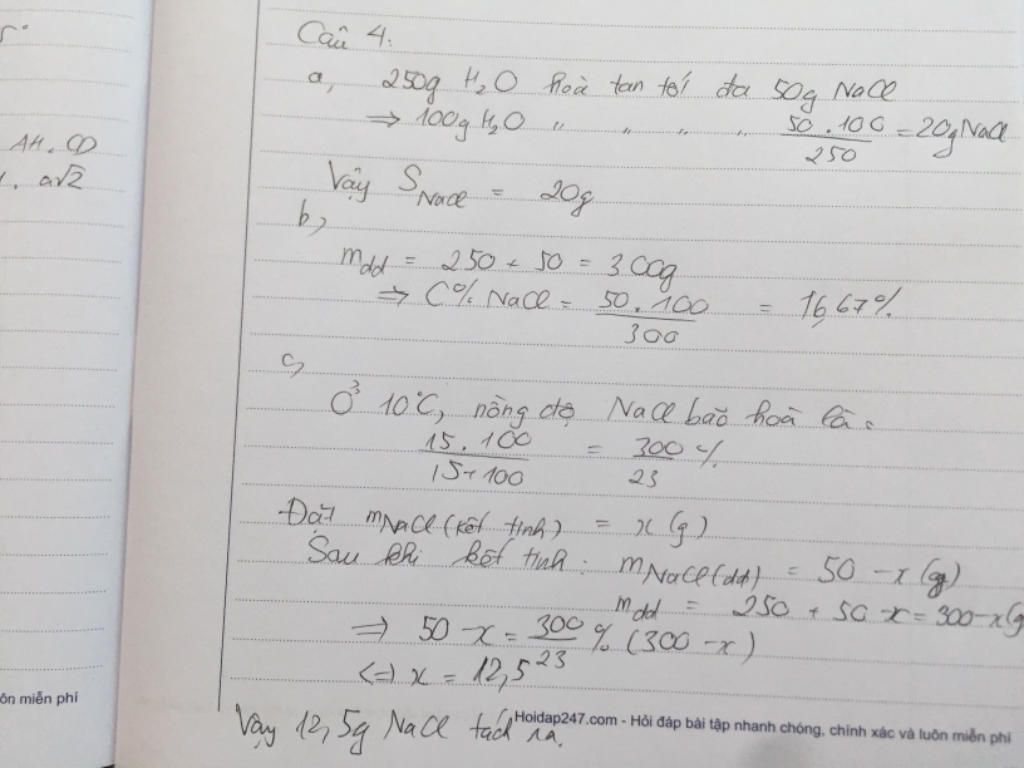 AH. CD
a√2
Câu 4:
a, 250g H₂O hoà tan tối đa 50g NaCl
⇒ 100g H₂O " " " " 50.100/250 = 20g NaCl
Vậy S NaCl = 20g
b,
mdd = 250 + 50 = 300g
⇒ C% NaCl = 50.100/300 = 16,67%
c,
Ở 10°C, nồng độ NaCl bão hoà là:
15.100/15+100 = 300/23 %
Đặt mNaCl (kết tinh) = x (g)
Sau khi kết tinh: mNaCl(dd) = 50 - x (g)
mdd = 250 + 50 - x = 300 - x (g
⇒ 50 - x = 300/23 % (300 - x)
⇔ x = 12,5
Vậy 12,5g NaCl tách ra.
ôn miễn phí
Hoidap247.com - Hỏi đáp bài tập nhanh chóng, chính xác và luôn miễn phí